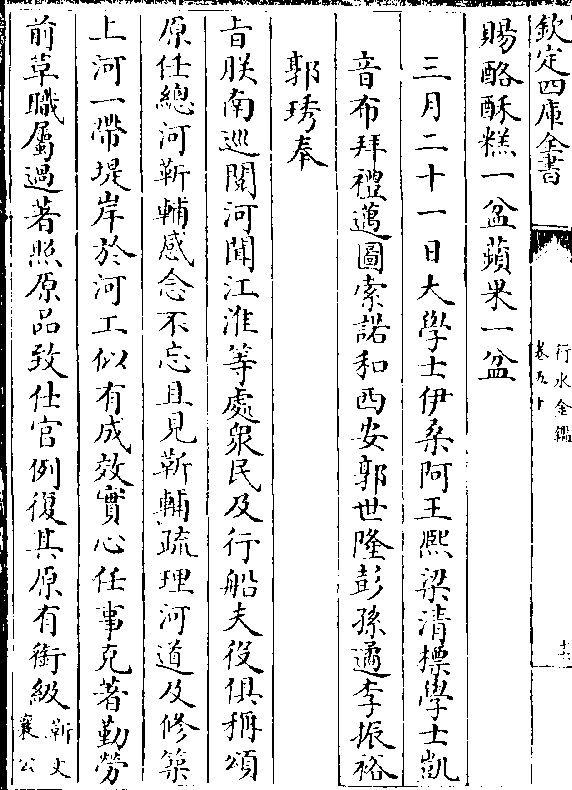 欽定四庫全書
行水金鑑
卷五十
十三
賜酪酥糕一盆蘋果一盆
三月二十一日大學士伊桑阿王熙梁清標學士凱
音布拜禮邁圖索諾和西安郭世隆彭孫遹李振裕
郭琇奉
㫖朕南巡閱河聞江淮等處衆民及行船夫役俱稱頌
原任總河靳輔感念不忘且見靳輔疏理河道及修築
上河一帶堤岸於河工似有成效實心任事克著勤勞
前革職屬過著照原品致仕官例復其原有銜級靳文
襄公